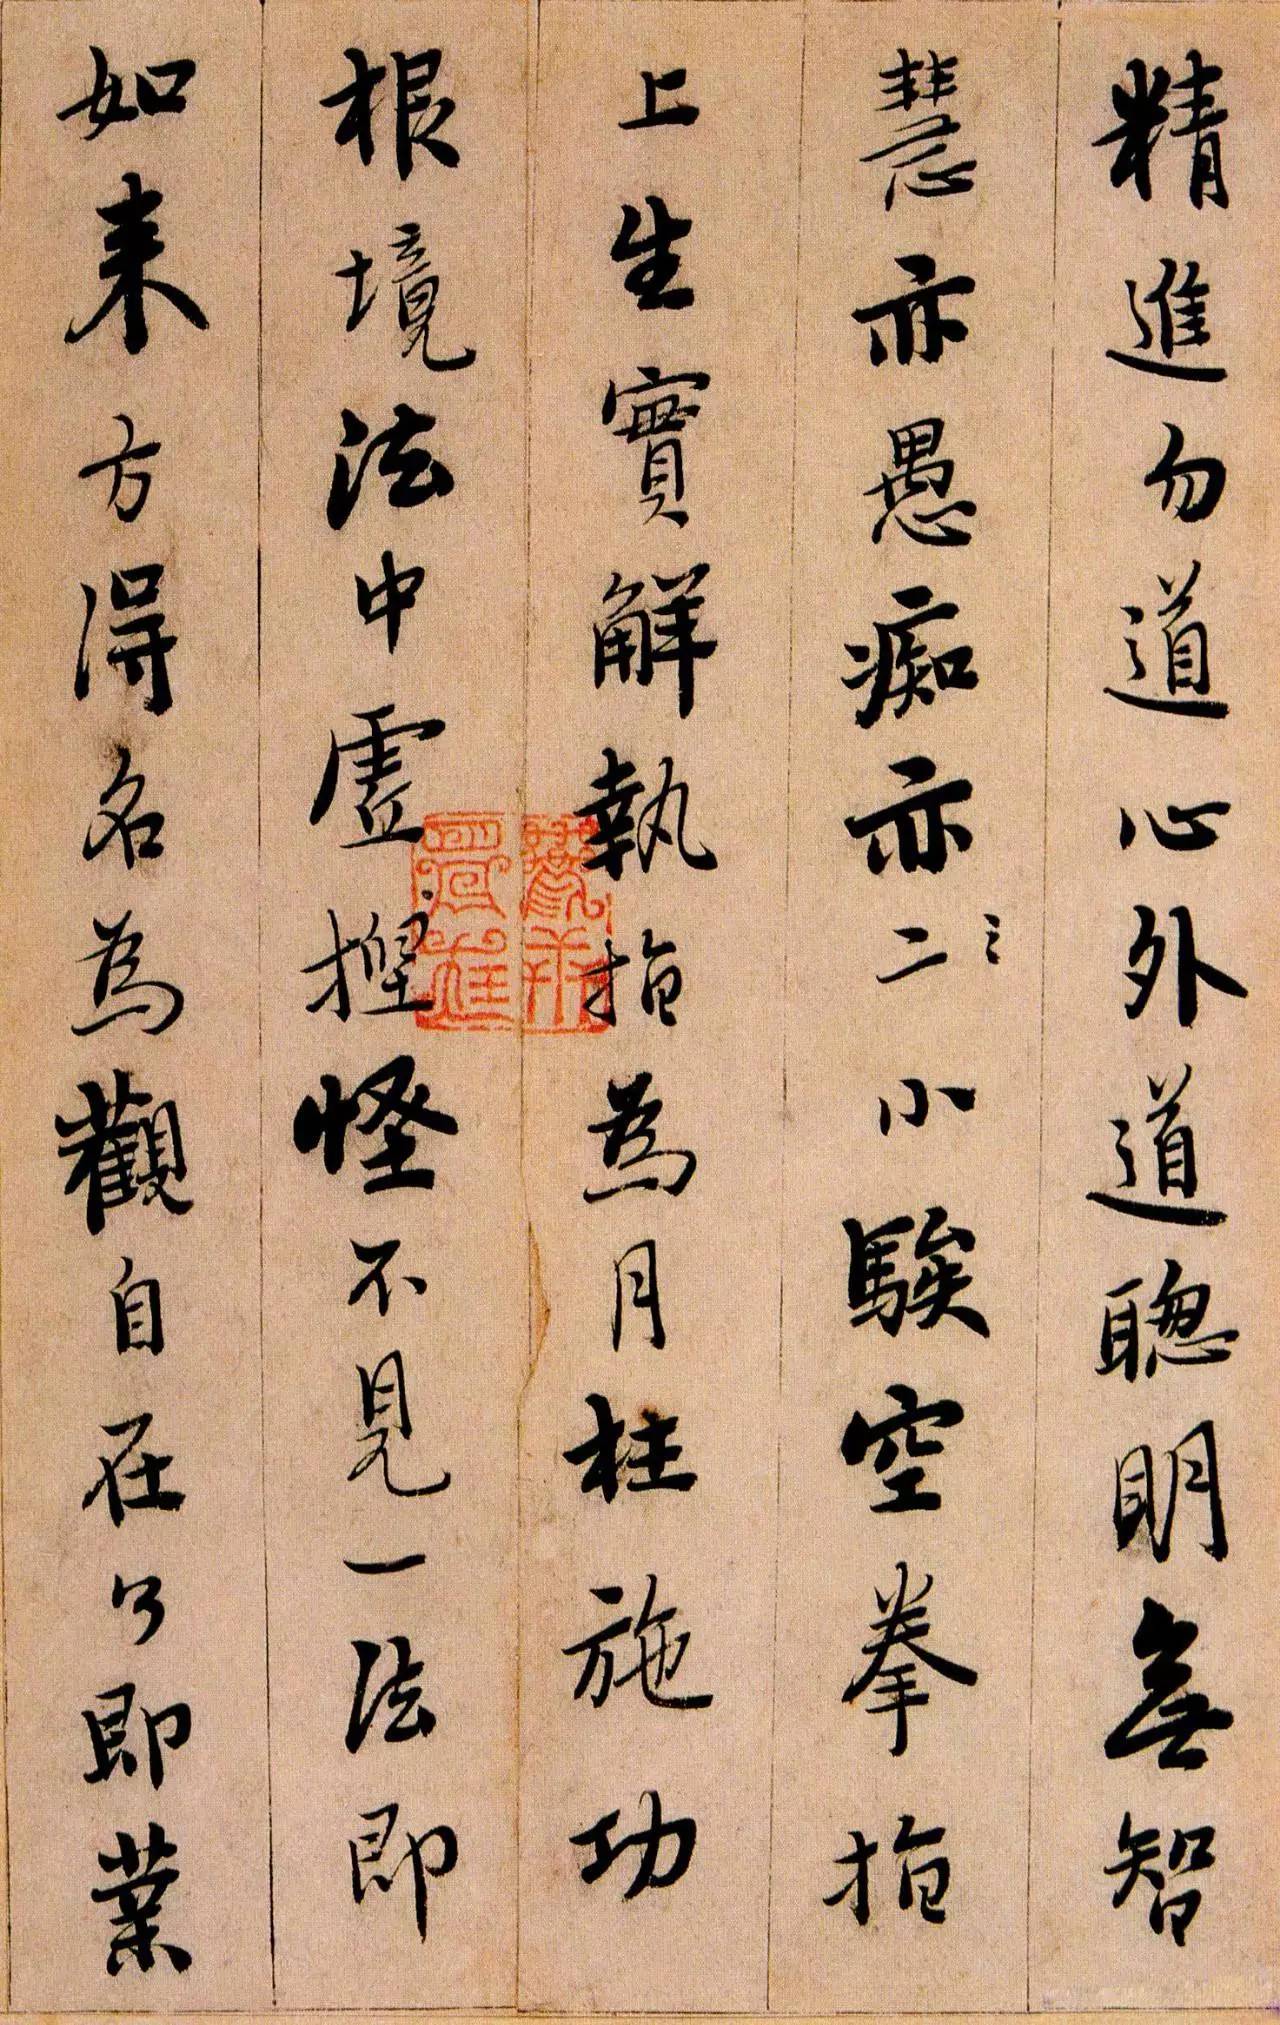 精進勿道心外道聰明無智
慧亦愚癡亦二小騃空拳指
上生實解執指為月枉施功
根境法中虛揑怪不見一法即
如來方得名為觀自在了即業